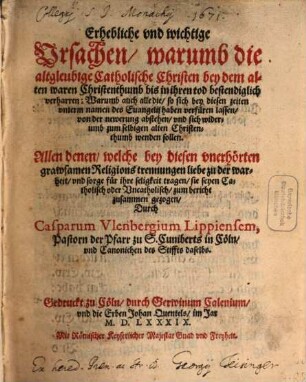 Collegij S. J. Monachij 1671.
Erhebliche vnd wichtige
Vrsachen/ warumb die
altgleubige Catholische Christen bey dem al-
ten waren Christenthumb bis in ihren tod bestendiglich
verharren: Warumb auch alle die/ so sich bey diesen zeiten
vnterm namen des Euangelij haben verfüren lassen/
von der newerung abstehen/ vnd sich wider-
umb zum selbigen alten Christen-
thumb wenden sollen.
Allen denen/ welche bey diesen vnerhörten
grawsamen Religions trennungen liebe zu der war-
heit/ vnd sorge für ihre seligkeit tragen/ sie seyen Ca-
tholisch oder Vncatholisch/ zum bericht
zusammen gezogen/
Durch
Casparum Vlenbergium Lippiensem,
Pastorn der Pfarr zu S. Cuniberts in Cöln/
vnd Canonichen des Stiffts daselbs.
Gedruckt zu Cöln/ durch Gerwinum Calenium/
vnd die Erben Johan Quentels/ im Jar
M. D. LXXXIX.
Mit Römischer Keyserlicher Maiestat Gnad vnd Freyheit.